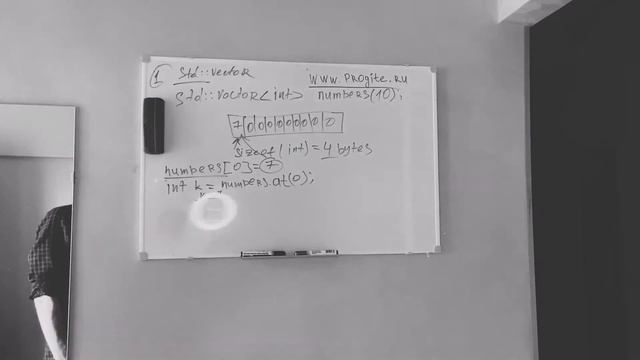 1 std::vector
www.progite.ru
std::vector<int> numbers(10);
7 0 0 0 0 0 0 0 0
sizeof(int) = 4 bytes
numbers[0] = 7
int k = numbers.at(0);